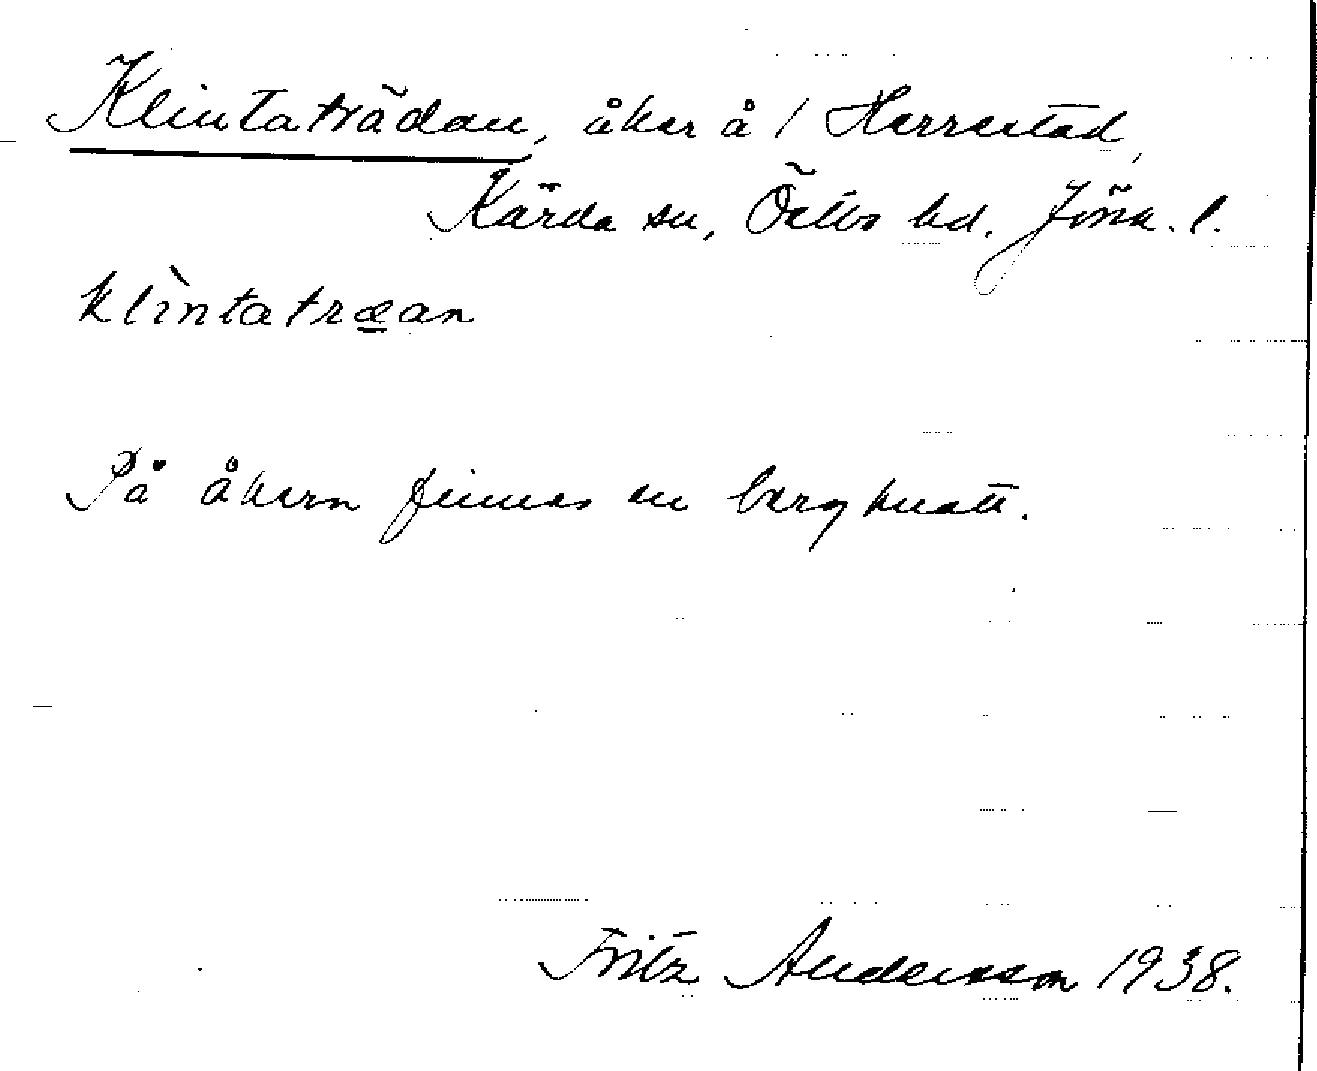 Klintaträdan, åker å / Herrestad,
Kärda sn, Östbo hd. Jönk. l.
klìntatræ̲an
På åkern finnes en bergknatt.
Fritz Andersson 1938.